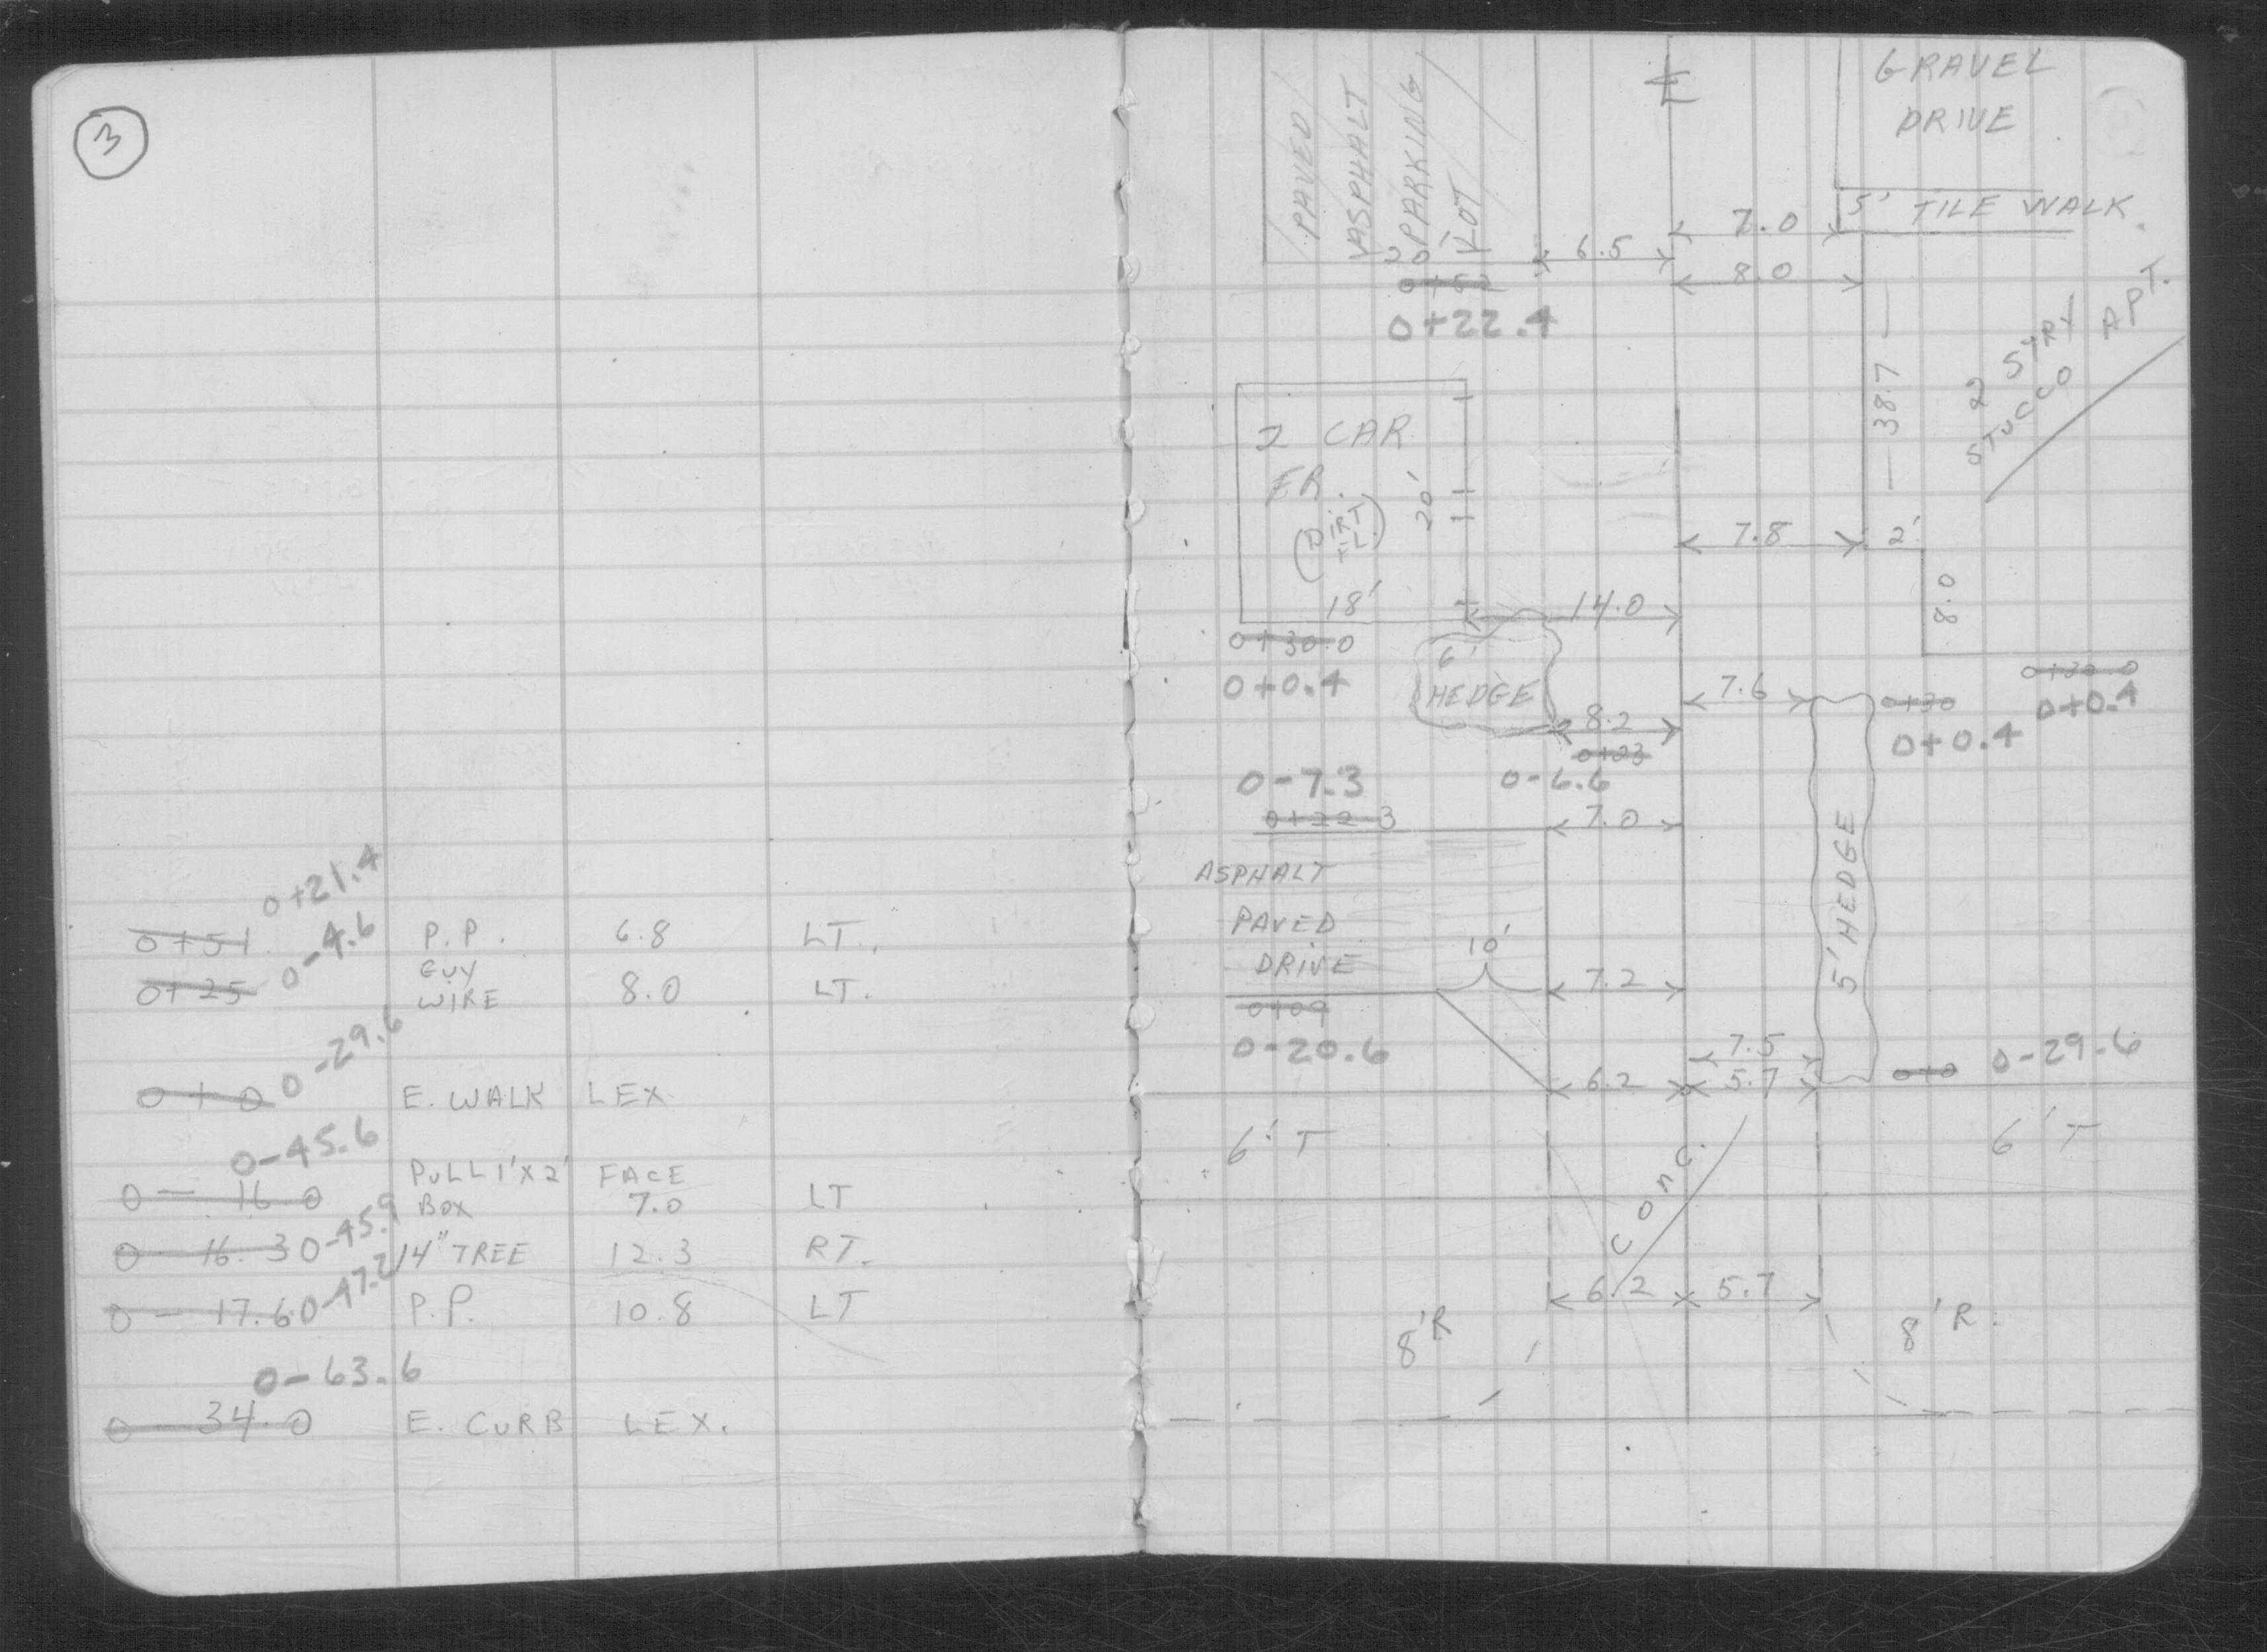 3
0+21.4
0+51 P.P. 6.8 LT.
0-4.6
0+25 GUY WIRE 8.0 LT.
0-29.6
0+0 E. WALK LEX
0-45.6
0-16.0 PULL 1'X2' BOX FACE 7.0 LT
0-16.3 0-45.9 14" TREE 12.3 RT.
0-17.6 0-47.2 P.P. 10.8 LT
0-63.6
0-34.0 E. CURB LEX.
PAVED
ASPHALT
PARKING
LOT
GRAVEL
DRIVE
7.0 5' TILE WALK
6.5
8.0
0+22.4
38.7
2 STRY APT.
STUCCO
2 CAR
FR.
(DIRT
FL.)
20'
7.8 2'
18' 14.0
8.0
0+30.0
0+0.4
6'
HEDGE
7.6
0+30
0+0.4
0+30.0
0+0.4
8.2
0+23
0-7.3 0-6.6
0+22.3
7.0
ASPHALT
PAVED
DRIVE
10'
7.2
5' HEDGE
0+09
0-20.6
7.5
6.2 5.7
0+0 0-29.6
6' T
6' T
CONC.
6.2 5.7
8'R
8'R.